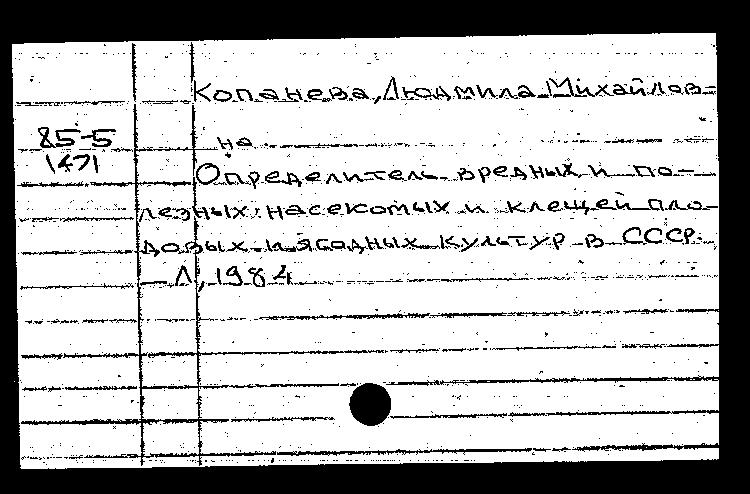 Копанева, Людмила Михайлов-
85-5
на
1471
Определитель вредных и по-
лезных насекомых и клещей пло-
довых и ягодных культур в СССР.
– Л, 1984